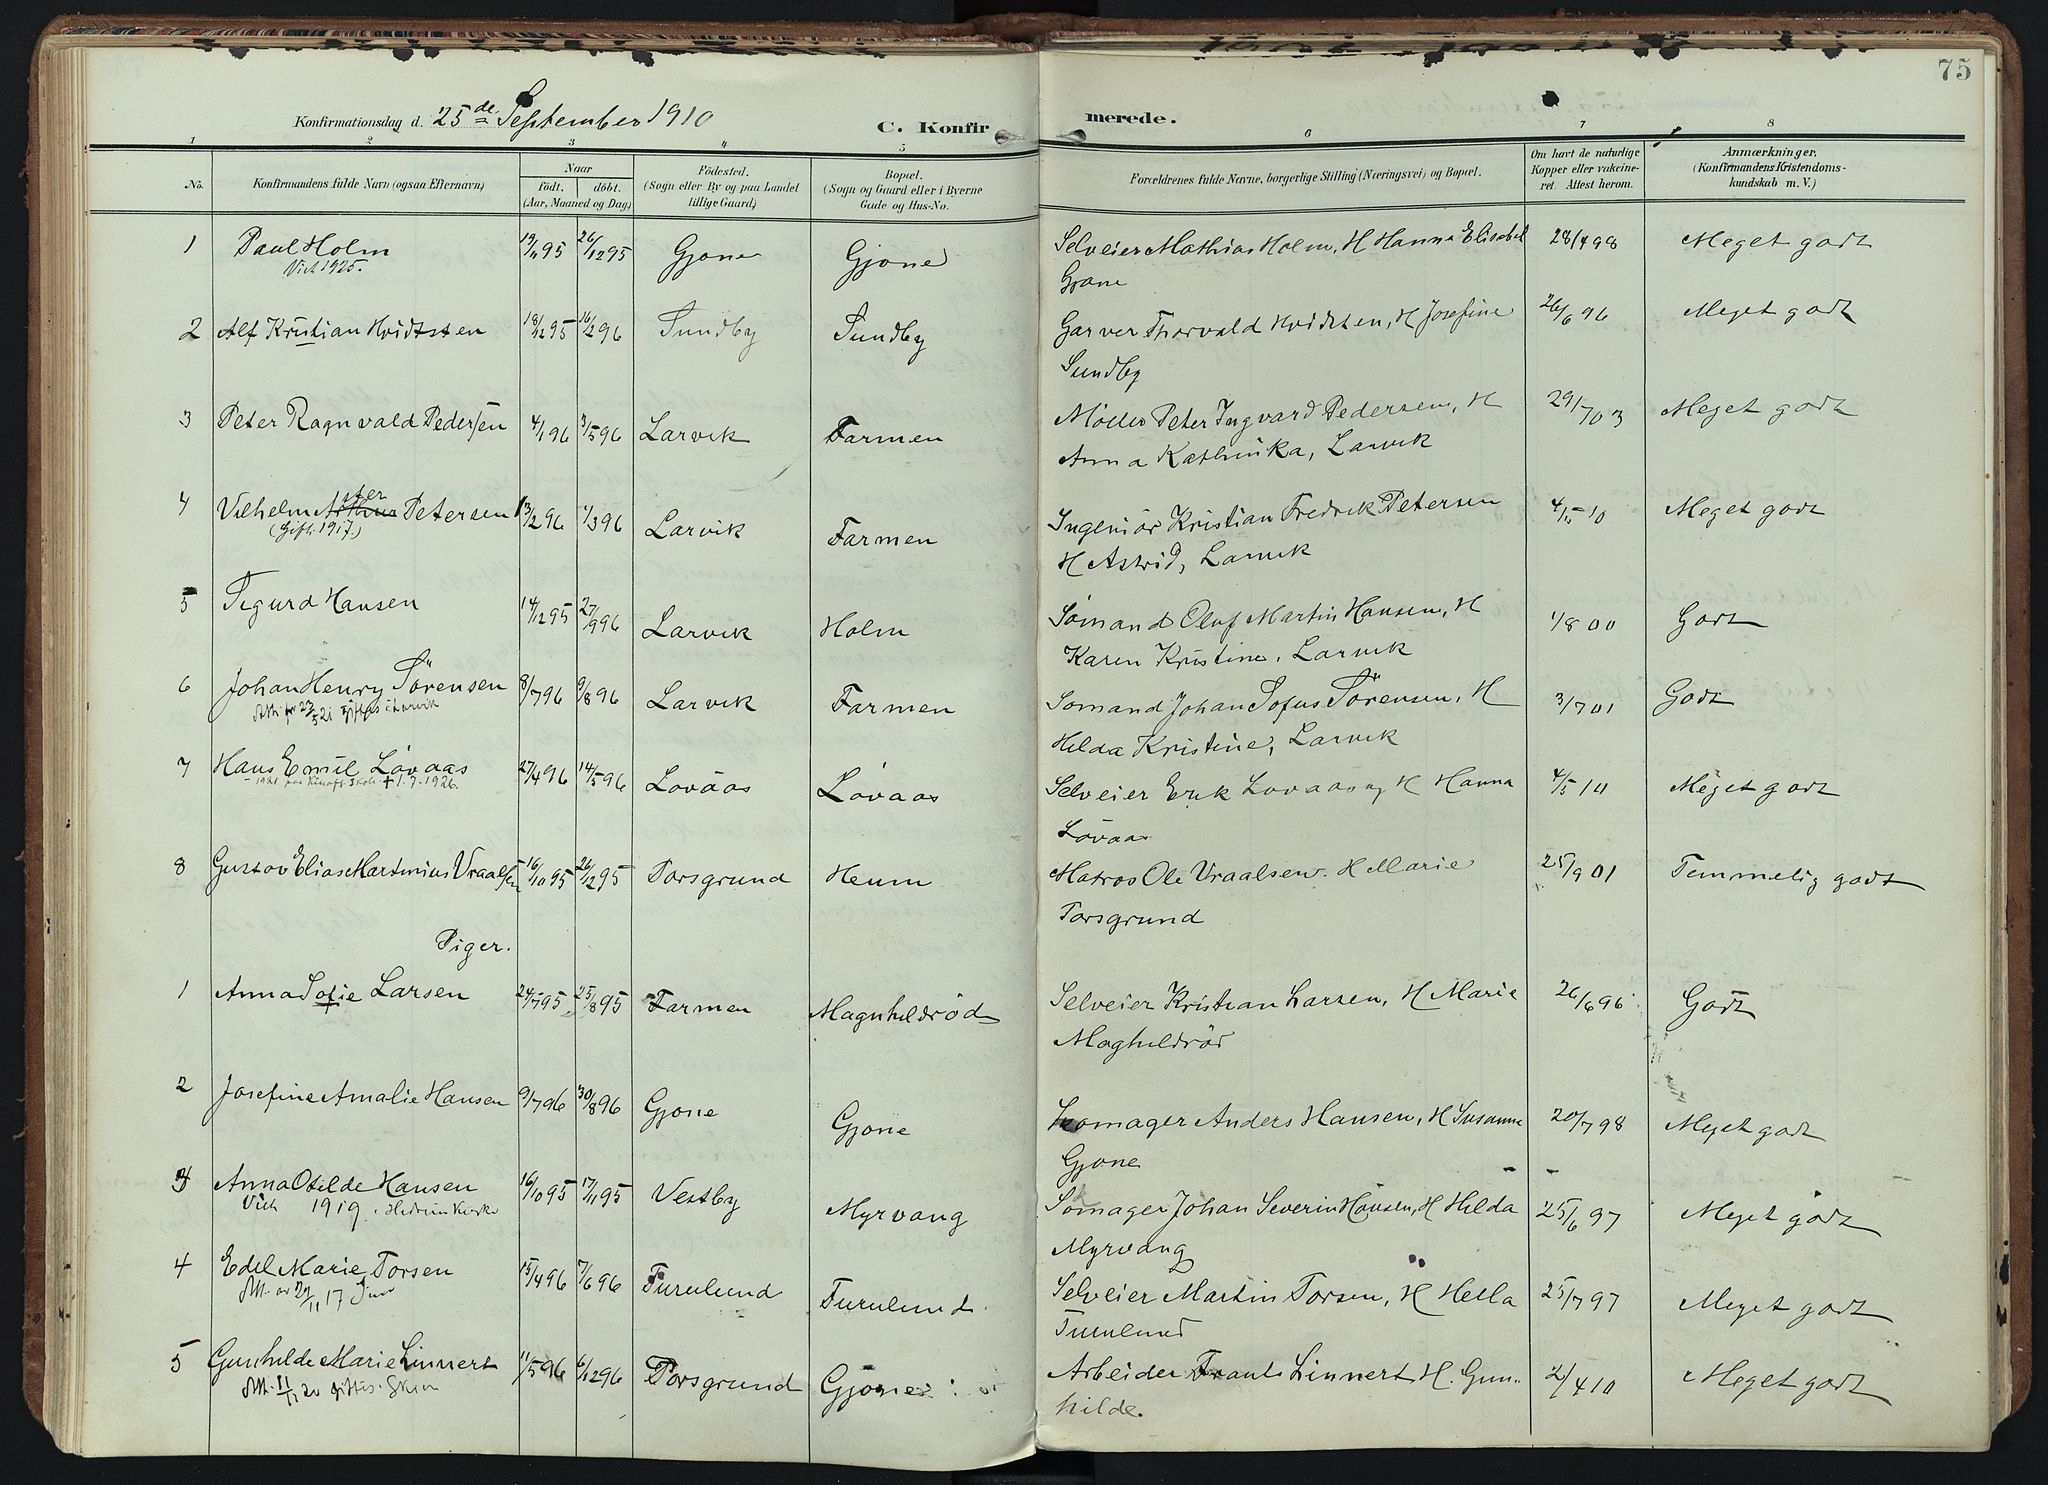 75
Konfirmationsdag d. 25de September 1910 C. Konfirmerede.
1 2 3 4 5 6 7 8
No. Konfirmandens fulde Navn (ogsaa Efternavn) Naar födt. döbt. (Aar, Maaned og Dag) Födested. (Sogn eller By og paa Landet tillige Gaard) Bopæl. (Sogn og Gaard eller i Byerne Gade og Hus-No. Forældrenes fulde Navne, borgerlige Stilling (Næringsvei) og Bopæl. Om havt de naturlige Kopper eller vakcineret. Attest herom. Anmærkninger, (Konfirmandens Kristendomskundskab m. V.)
1 Paul Holm 19/11 95 26/12 95 Gjone Gjone Selveier Mathias Holm, H Hanna Elisabet 28/4 98 Meget godt
Viet 1925. Gjone
2 Alf Kristian Hvidtsten 18/12 95 16/2 96 Sundby Sundby Garver Thorvald Hvidtsten, H Josefine 26/6 96 Meget godt
Sundby
3 Peter Ragnvald Pedersen 4/1 96 3/5 96 Larvik Farmen Møller Peter Ingvard Pedersen, H 29/7 03 Meget godt
Anna Kathinka, Larvik
4 Vilhelm Arthur ster Petersen 13/2 96 1/3 96 Larvik Farmen Ingeniör Kristian Fredrik Petersen 4/5 10 Meget godt
(Gift 1917.) H Astrid, Larvik
5 Sigurd Hansen 14/12 95 27/9 96 Larvik Holm Sömand Oluf Martin Hansen, H 1/8 00 Godt
Karen Kristine, Larvik
6 Johan Henry Sörensen 8/7 96 9/8 96 Larvik Farmen Somand Johan Sofus Sörensen, H 3/7 01 Godt
Att. for 23/5 21 giftes i Larvik Hilda Kristine, Larvik
7 Hans Emil Lövaas 27/4 96 14/5 96 Lovaas Lövaas Selveier Erik Lovaas og H Hanna 4/5 10 Meget godt
+ 1.7.1926. Lövaas
8 Gustav Elias Martinius Vraalsen 16/10 95 26/12 95 Porsgrund Heum Matros Ole Vraalsen. H Marie 25/9 01 Temmelig godt
Porsgrund
Piger.
1 Anna Sofie Larsen 24/7 95 25/8 95 Farmen Magnhildröd Selveier Kristian Larsen, H Marie 26/6 96 Godt
Maghildröd
2 Josefine Amalie Hansen 9/7 96 30/8 96 Gjone Gjone Skomager Anders Hansen, H Susanne 20/7 98 Meget godt
Gjone
3 Anna Otilde Hansen 16/10 95 17/11 95 Vestby Myrvang Skomager Johan Severin Hansen, H Hilda 25/6 97 Meget godt
Viet 1919 i Hedrum Kirke Myrvang
4 Edel Marie Torsen 15/4 96 7/6 96 Furulund Furulund. Selveier Martin Torsen, H Hella 25/7 97 Meget godt
Att. av 29/11 17 Furulund
5 Gunhilde Marie Linnert 11/5 96 6/12 96 Porsgrund Gjone Arbeider Frants Linnert H. Gun- 2/4 10 Meget godt
Att. 11/11 20 giftes. Skien hilde.